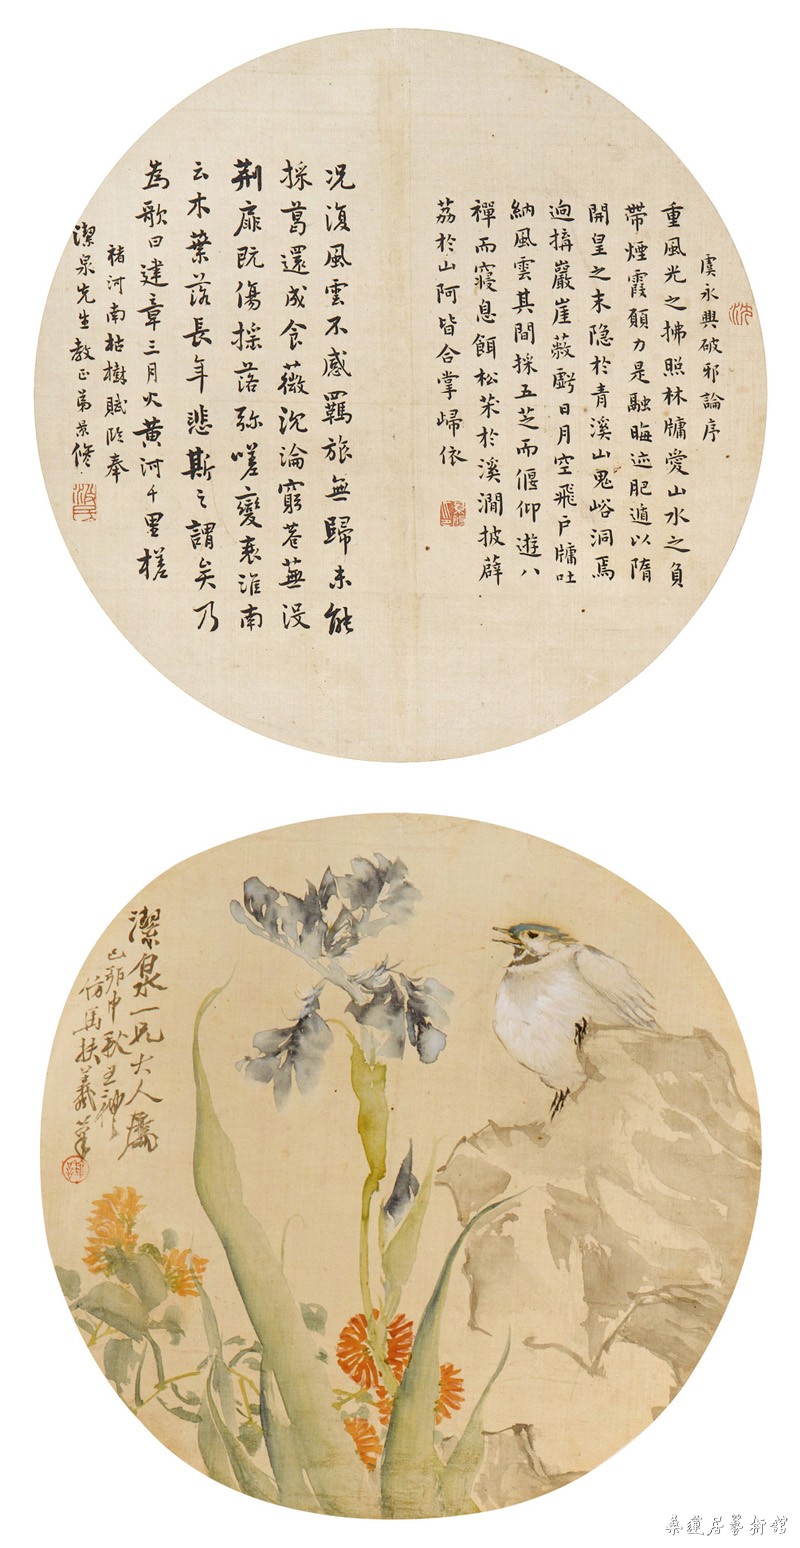 虞永興破邪論序
重風光之拂照林牖愛山水之負
帶煙霞願力是融晦迹肥遁以隋
開皇之末隐於青溪山鬼峪洞焉
迥構巖崖蔽虧日月空飛户牖吐
納風雲其間採五芝而偃仰遊八
禪而寢息餌松朮於溪澗披薜
荔於山阿皆合掌歸依
况復風雲不感羈旅無歸未能
採葛還成食薇沉淪窮巷蕪没
荆扉既傷揺落弥嗟變衰淮南
云木葉落長年悲斯之謂矣乃
為歌曰建章三月火黄河千里槎
褚河南枯樹賦臨奉
潔泉先生教正弟景修
潔泉一兄大人屬
己卯中秋王禮
仿馬扶羲筆
桑蓮居藝術館